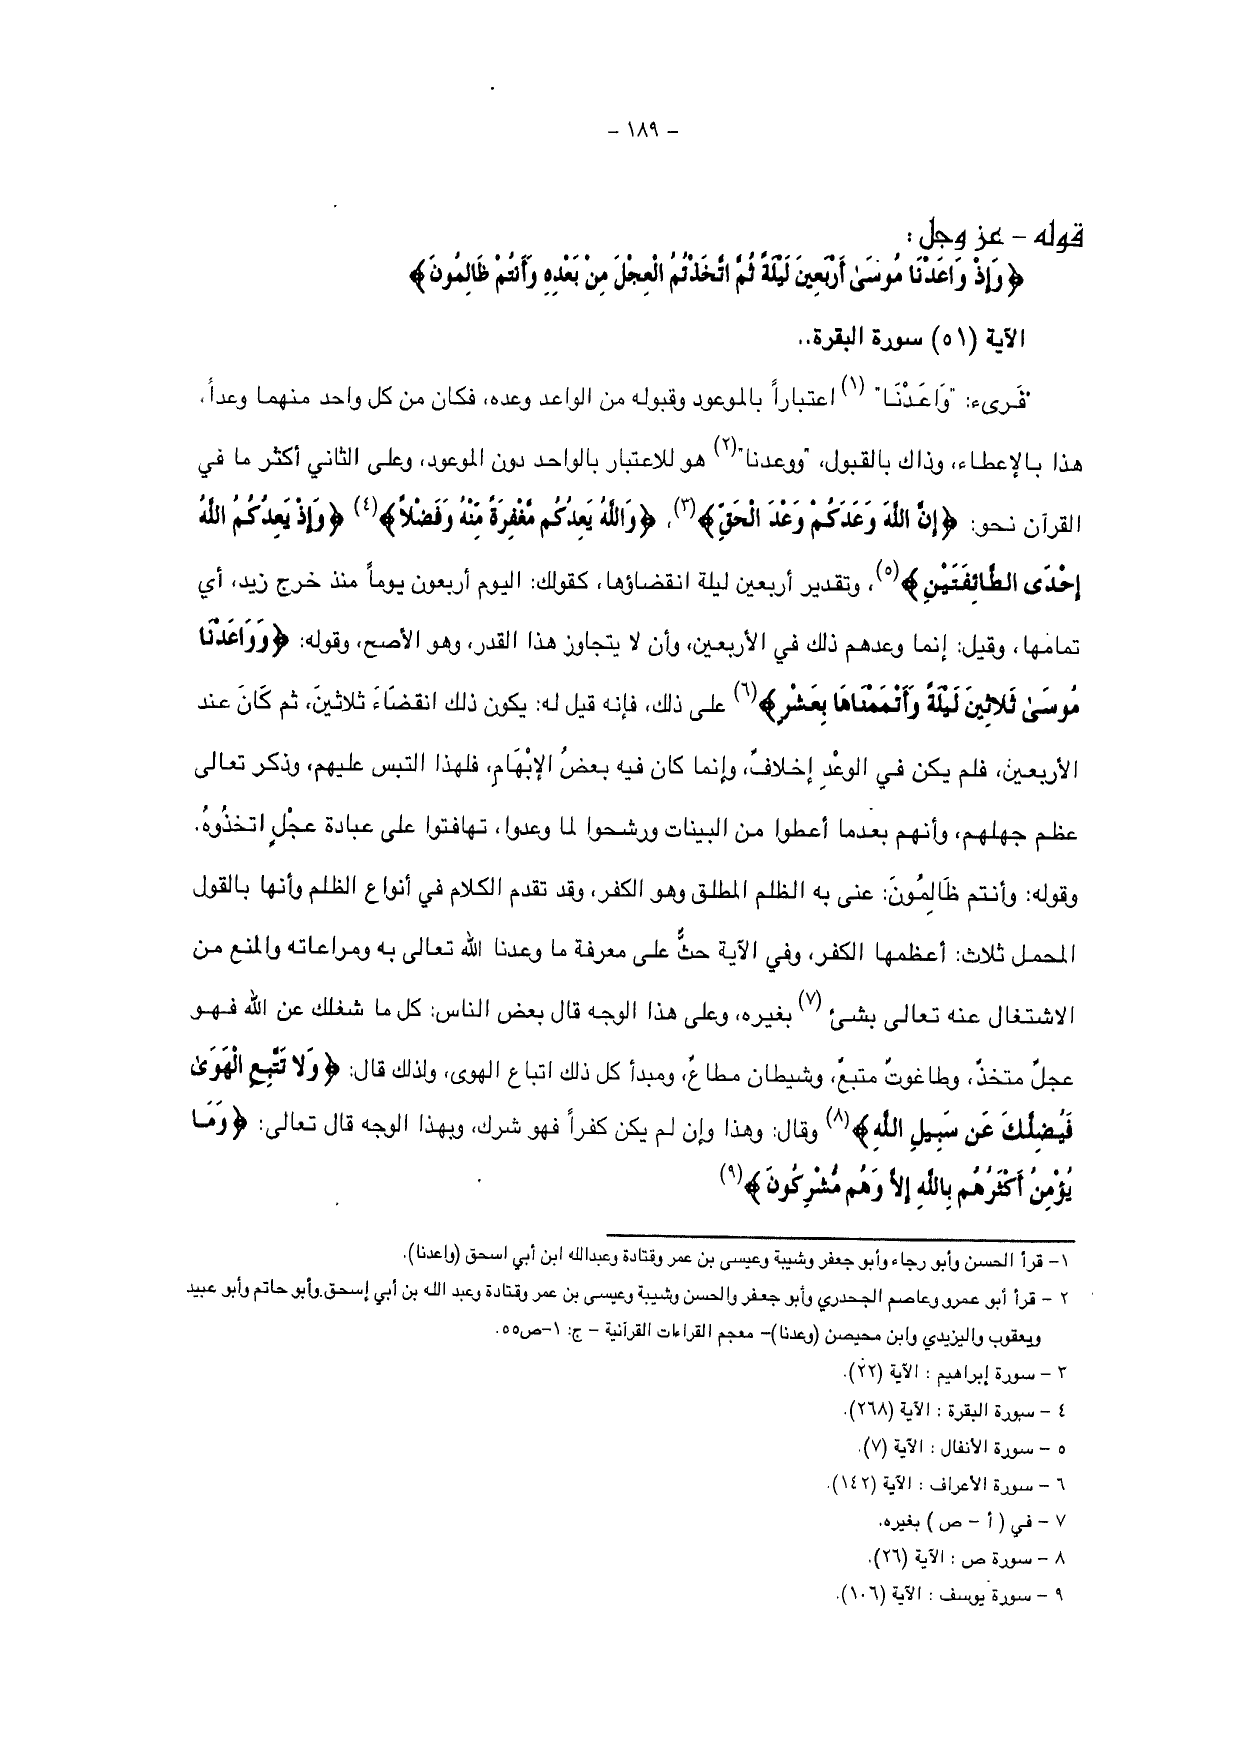 - ١٨٩ -
قوله - عز وجل :
﴿وَإِذْ وَاعَدْنَا مُوسَىٰ أَرْبَعِينَ لَيْلَةً ثُمَّ اتَّخَذْتُمُ الْعِجْلَ مِنْ بَعْدِهِ وَأَنتُمْ ظَالِمُونَ﴾
الآية (٥١) سورة البقرة..
"قَرىء: "وَاعَدْنَا" (١) اعتباراً بالموعود وقبوله من الواعد وعده، فكان من كل واحد منهما وعداً،
هذا بالإعطاء، وذاك بالقبول، "ووعدنا"(٢) هو للاعتبار بالواحد دون الموعود، وعلى الثاني أكثر ما في
القرآن نحو: ﴿إِنَّ اللَّهَ وَعَدَكُمْ وَعْدَ الْحَقِّ﴾(٣)، ﴿وَاللَّهُ يَعِدُكُم مَّغْفِرَةً مِّنْهُ وَفَضْلاً﴾(٤) ﴿وَإِذْ يَعِدُكُمُ اللَّهُ
إِحْدَى الطَّائِفَتَيْنِ﴾(٥)، وتقدير أربعين ليلة انقضاؤها، كقولك: اليوم أربعون يوماً منذ خرج زيد، أي
تمامها، وقيل: إنما وعدهم ذلك في الأربعين، وأن لا يتجاوز هذا القدر، وهو الأصح، وقوله: ﴿وَوَاعَدْنَا
مُوسَىٰ ثَلَاثِينَ لَيْلَةً وَأَتْمَمْنَاهَا بِعَشْرٍ﴾(٦) على ذلك، فإنه قيل له: يكون ذلك انقضَاءَ ثلاثينَ، ثم كَانَ عند
الأربعين، فلم يكن في الوعْدِ إخلافٌ، وإنما كان فيه بعضُ الإبْهَامِ، فلهذا التبس عليهم، وذكر تعالى
عظم جهلهم، وأنهم بعدما أعطوا من البينات ورشحوا لما وعدوا، تهافتوا على عبادة عجْلٍ اتخذُوهُ.
وقوله: وأنتم ظَالِمُونَ: عنى به الظلم المطلق وهو الكفر، وقد تقدم الكلام في أنواع الظلم وأنها بالقول
المحمل ثلاث: أعظمها الكفر، وفي الآية حثٌّ على معرفة ما وعدنا الله تعالى به ومراعاته والمنع من
الاشتغال عنه تعالى بشئ (٧) بغيره، وعلى هذا الوجه قال بعض الناس: كل ما شغلك عن الله فهو
عجلٌ متخذٌ، وطاغوتٌ متبعٌ، وشيطان مطاعٌ، ومبدأ كل ذلك اتباع الهوى، ولذلك قال: ﴿وَلَا تَتَّبِعِ الْهَوَىٰ
فَيُضِلَّكَ عَن سَبِيلِ اللَّهِ﴾(٨) وقال: وهذا وإن لم يكن كفراً فهو شرك، وبهذا الوجه قال تعالى: ﴿وَمَا
يُؤْمِنُ أَكْثَرُهُم بِاللَّهِ إِلاَّ وَهُم مُّشْرِكُونَ﴾(٩)
١- قرأ الحسن وأبو رجاء وأبو جعفر وشيبة وعيسى بن عمر وقتادة وعبدالله ابن أبي اسحق (واعدنا).
٢ - قرأ أبو عمرو وعاصم الجحدري وأبو جعفر والحسن وشيبة وعيسى بن عمر وقتادة وعبد الله بن أبي إسحق.وأبو حاتم وأبو عبيد
ويعقوب واليزيدي وابن محيصن (وعدنا)- معجم القراءات القرآنية - ج: ١-ص٥٥.
٣ - سورة إبراهيم : الآية (٢٢).
٤ - سورة البقرة : الآية (٢٦٨).
٥ - سورة الأنفال : الآية (٧).
٦ - سورة الأعراف : الآية (١٤٢).
٧ - في ( أ - ص ) بغيره.
٨ - سورة ص : الآية (٢٦).
٩ - سورة يوسف : الآية (١٠٦).